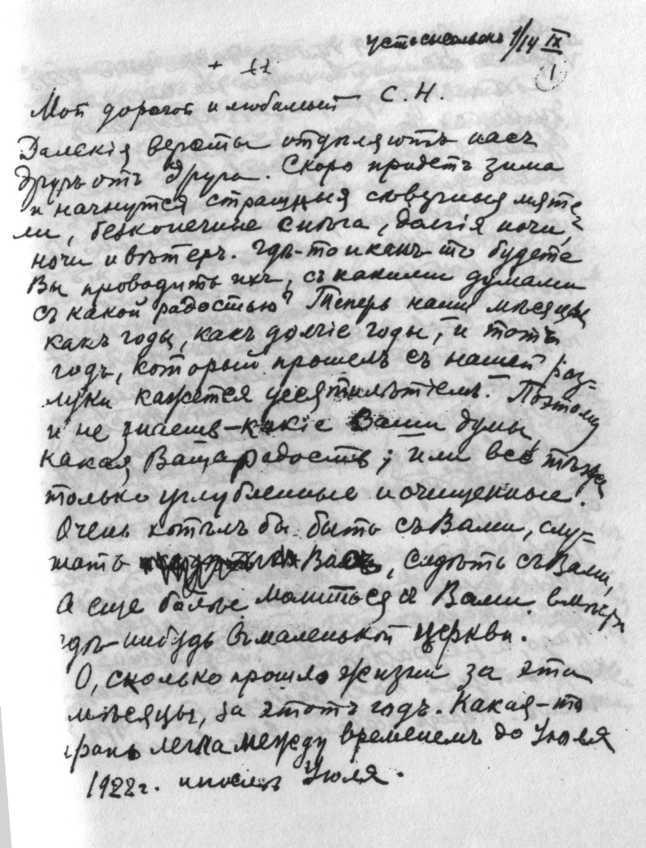 Устьсысольскъ 1/14 IX
1
+
Мой дорогой и любимый С. Н.
Далекія версты отдѣляютъ насъ
другъ отъ друга. Скоро придетъ зима
и начнутся страшныя сѣверныя мяте-
ли, безконечные снѣга, долгія ночи,
ночи и вѣтеръ. Гдѣ-то и какъ-то будете
Вы проводить ихъ, съ какими думами
съ какой радостью? Теперь наши мѣсяцы
какъ годы, какъ долгіе годы, и тотъ
годъ, который прошелъ съ нашей раз-
луки кажется десятилѣтіемъ. Поэтому
и не знаешь-какіе Ваши думы,
какая Ваша радость; или все тѣ же
только углубленные и очищенные.
Очень хотѣлъ бы быть съ Вами, слу-
шать Васъ, сидѣть съ Вами,
А еще болѣе молиться съ Вами вмѣстѣ
гдѣ-нибудь въ маленькой церкви.
О, сколько прошло жизни за эти
мѣсяцы, за этотъ годъ. Какая-то
грань легла между временемъ до Іюля
1922г. и послѣ Іюля.